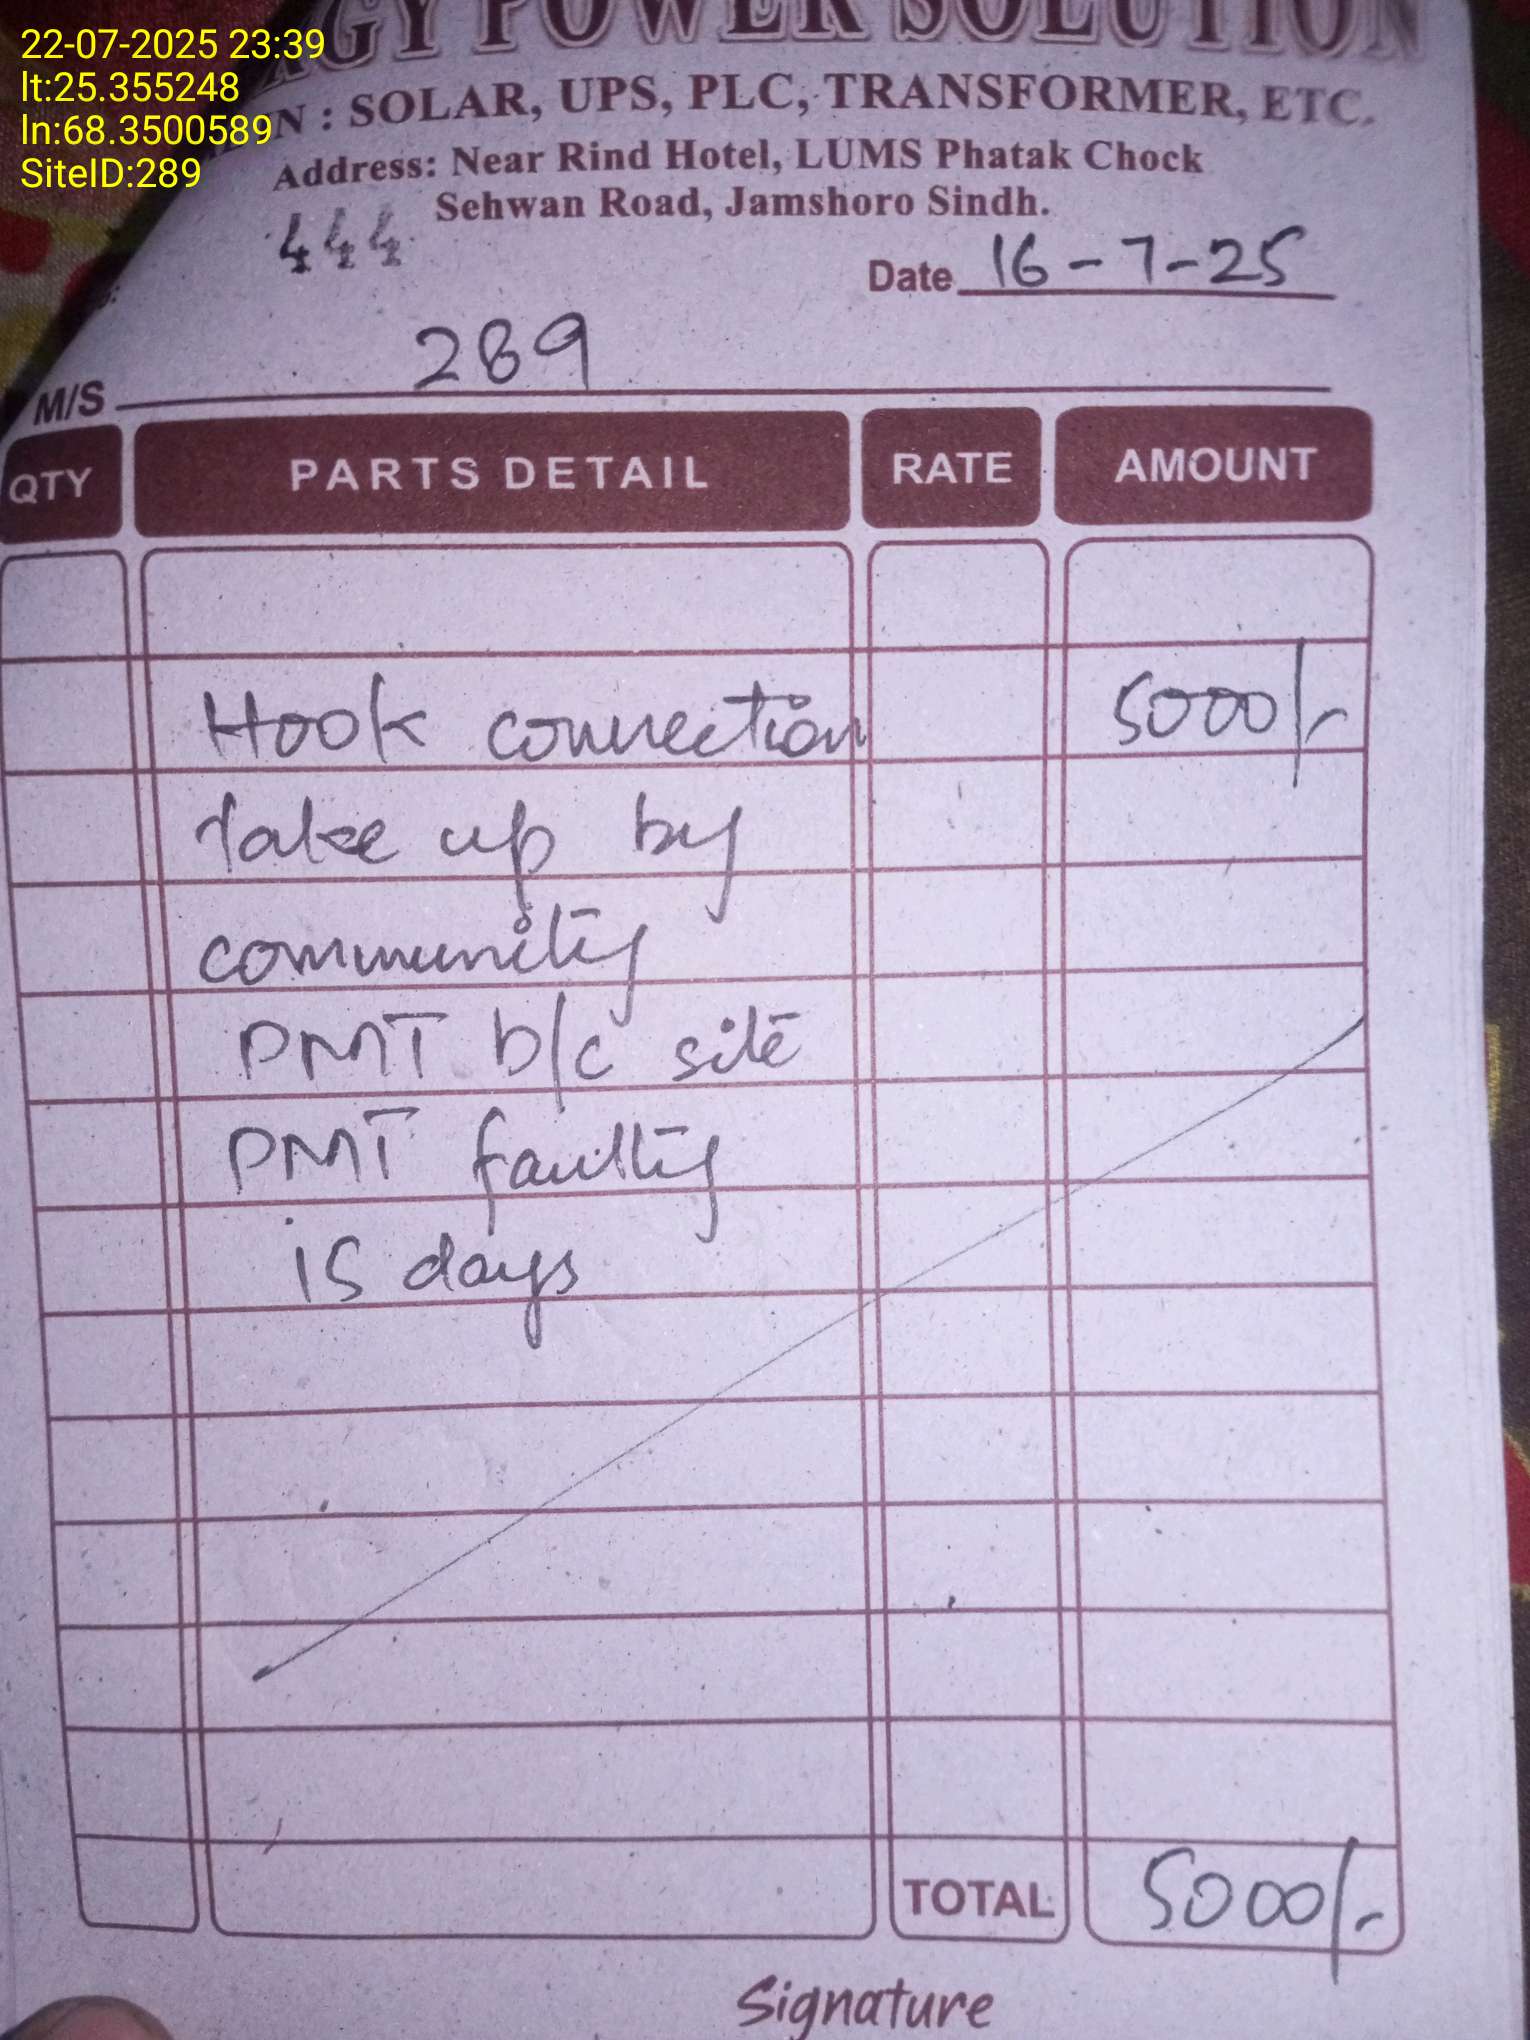 22-07-2025 23:39
lt:25.355248
ln:68.3500589
SiteID:289
POWER SOLUTION
: SOLAR, UPS, PLC, TRANSFORMER, ETC.
Address: Near Rind Hotel, LUMS Phatak Chock
Sehwan Road, Jamshoro Sindh.
444
Date 16-7-25
M/S 289
QTY PARTS DETAIL RATE AMOUNT
Hook connection 5000/-
take up by
community
PMT b/c site
PMT faulty
15 days
TOTAL 5000/-
Signature